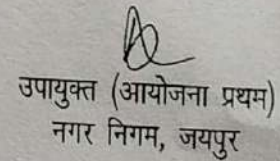 उपायुक्त (आयोजना प्रथम)
नगर निगम, जयपुर